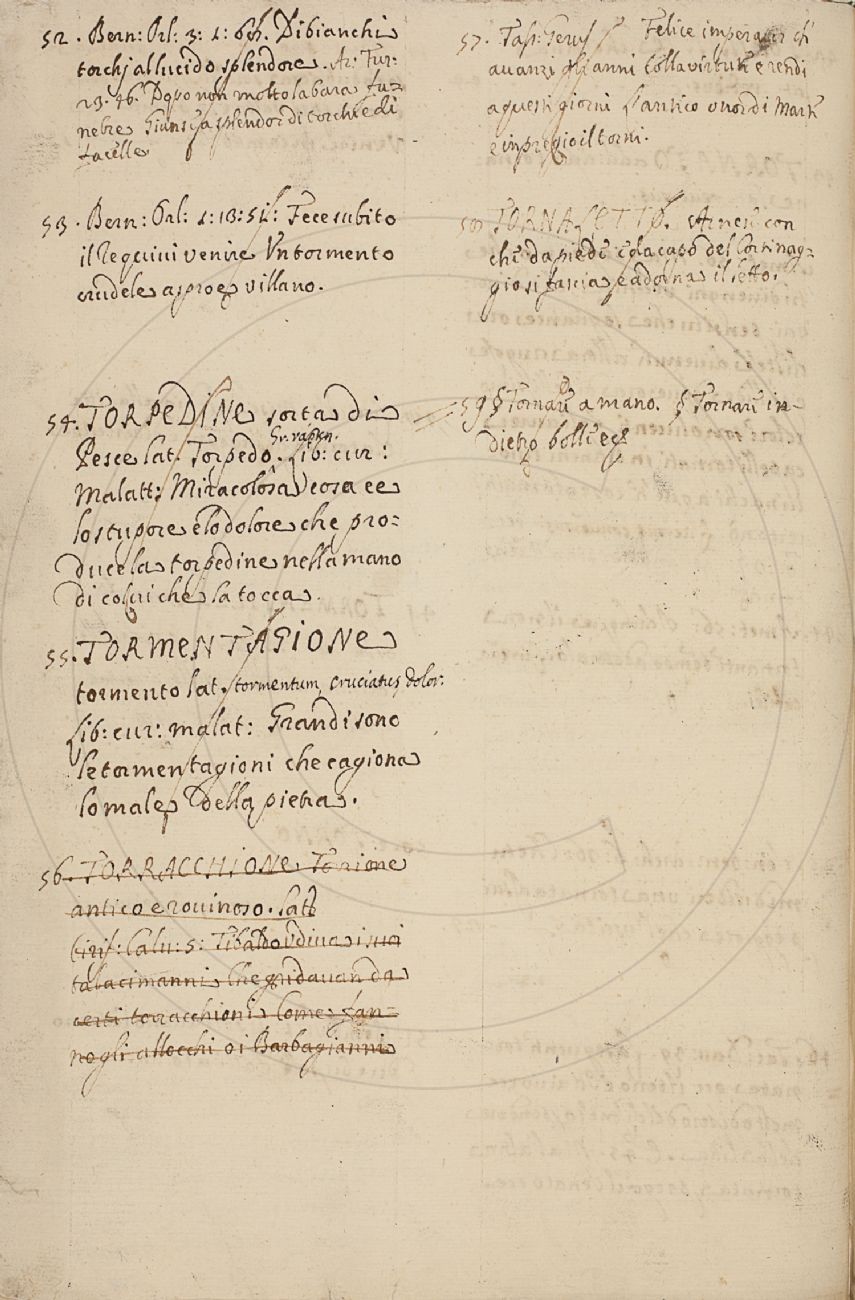 52. Bern: Orl: 3: 1: 64. Di bianchi
torchj al lucido splendore. Ar: Fur:
23. 46. Dopo non molto la bara fu=
nebre Giunse a splendor di torchi e di
facelle
53. Bern: Orl: 1: 13: 51: Fece subito
il Re quivi venire Un tormento
crudele aspro e villano.
54. TORPEDINE sorta di
Pesce lat. Torpedo. Gr. νάρκη. Lib: cur:
malatt: Miracolosa cosa ee
lo stupore e lo dolore che pro=
duce la torpedine nella mano
di colui che la tocca.
55. TORMENTAGIONE
tormento lat. tormentum, cruciatus, dolor.
Lib: cur: malat: Grandi sono
le tormentagioni che cagiona
lo male della pietra.
56. TORRACCHIONE Torrione
antico e rovinoso. Latt
Cirif: Calv: 5: Tibaldo udiva i suoi
tabacimanni Che gridavan da
certi torracchioni Come fan=
no gli allocchi o i Barbagianni
57. Tass: Gerus Felice imperator ch
avanzi gli anni Colla virtute e rendi
a questi giorni L'antico onor di Marte
e in pregio il torni.
58 TORNALETTO. Arnese con
che da piede e da capo del Cortinag=
gio si fascia e adorna il letto.
59 § Tornare a mano. § Tornare in=
dietro